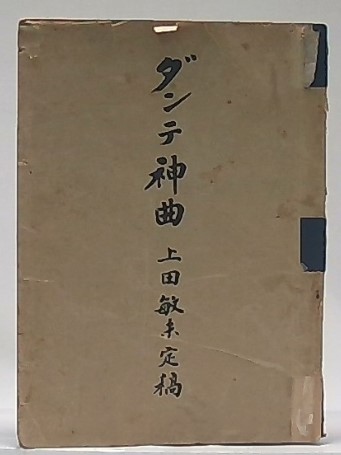 ダンテ神曲 上田敏未定稿